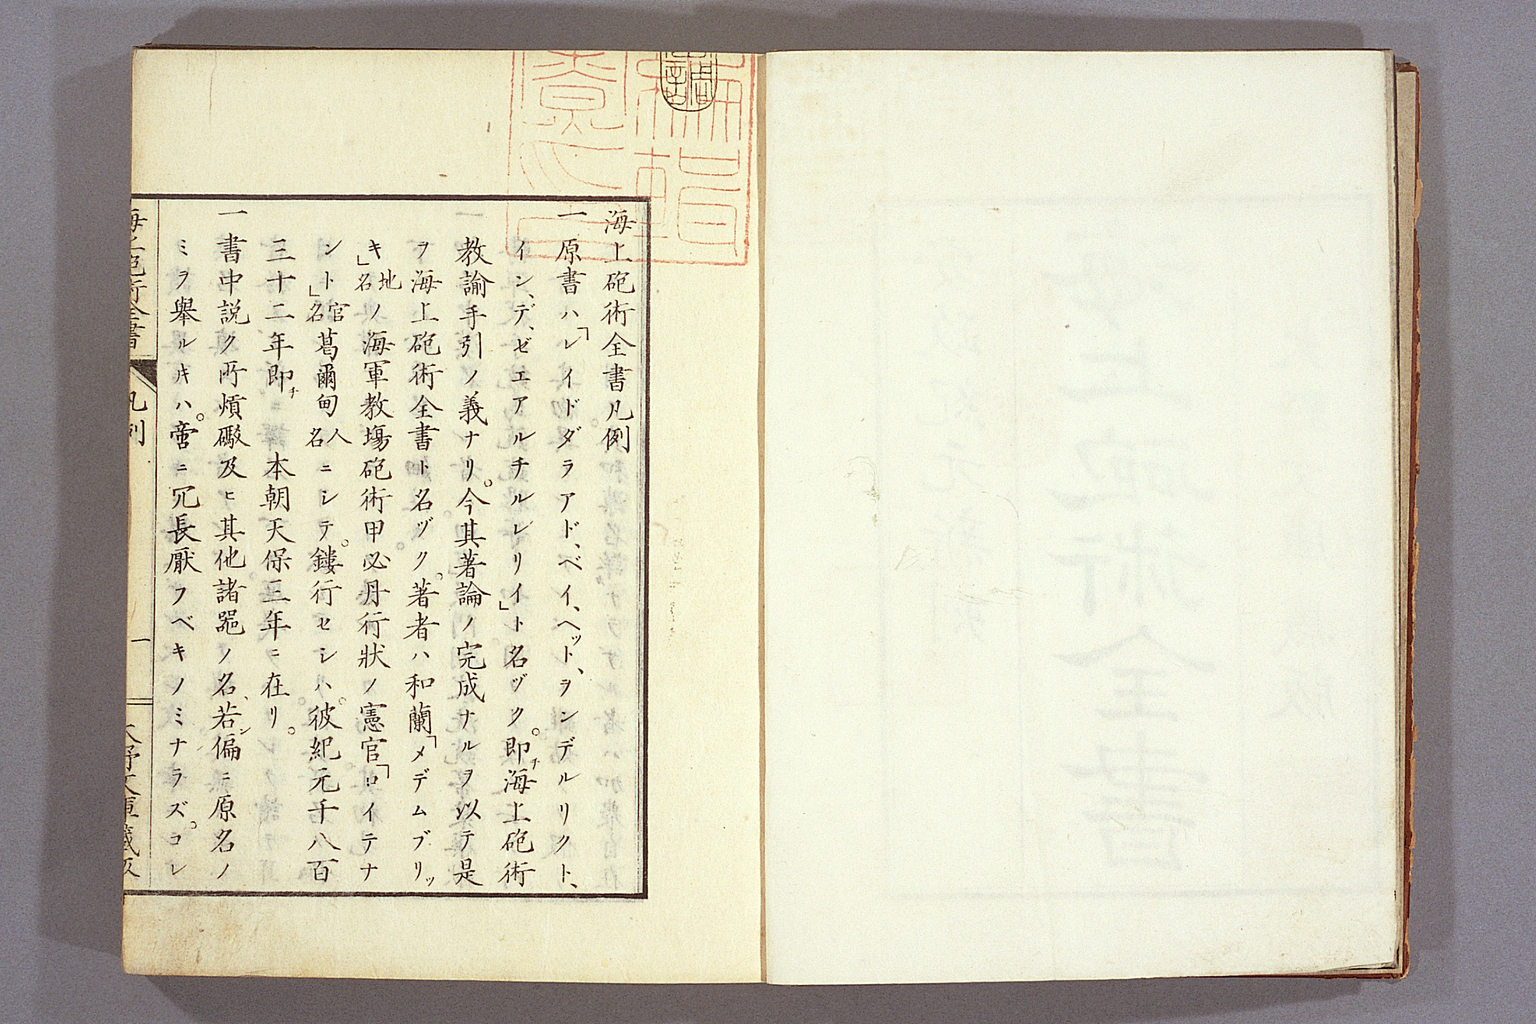 海上砲術全書凡例
一原書ハ「レイドダラアド、ベイ、ヘット、ヲンデルリクト、
イン、デ、ゼエアルチルレリイ」ト名ヅク。即チ海上砲術
教諭手引ノ義ナリ。今其著論ノ完成ナルヲ以テ是
ヲ海上砲術全書ト名ヅク。著者ハ和蘭「メデムブリッ
キ」地名ノ海軍教塲砲術甲必丹行狀ノ憲官「ロイテナ
ント」官名葛爾甸人名ニシテ。鏤行セシハ。彼紀元千八百
三十二年即チ 本朝天保三年ニ在リ。
一書中説ク所煩礮及ヒ其他諸噐ノ名、若シ偏ニ原名ノ
ミヲ擧ルキハ。啻ニ冗長厭フベキノミナラズ。コレ
海上砲術全書 凡例 一 大野文庫藏板